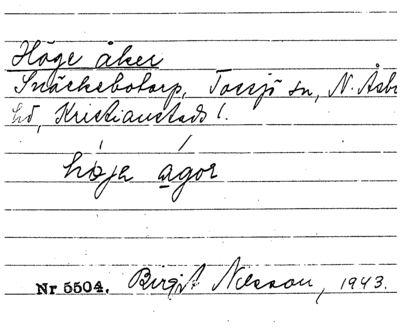 Höge åker
Snäckebotorp, Tossjö sn, N. Åsbo
hd, Kristianstads l.
høja agor
Nr 5504. Birgit Nilsson, 1943.